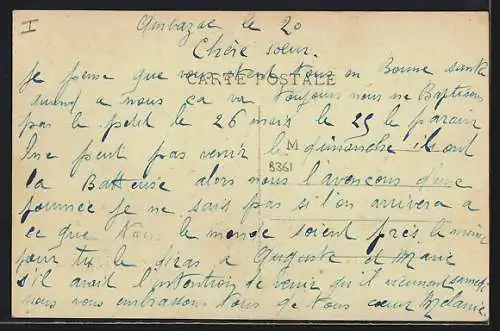 I
Ambazac le 20
Chère sœur.
Je pense que vous etent tous en Bonne sante
CARTE POSTALE
quand a nous ça va toujours nous ne Baptisons
pas le petit le 26 mais le 25 le parain
ne peut pas venir le dimanche ils ont
M
B361
la Batteuse alors nous l'avencons d'une
journee je ne sais pas si l'on arrivera a
ce que tous le monde soient près le
pour tu le diras a Auguste et Marie
s'il avait l'intention de venir qu'il viennent samedi
nous vous embrassons tous de tous cœur Melanie